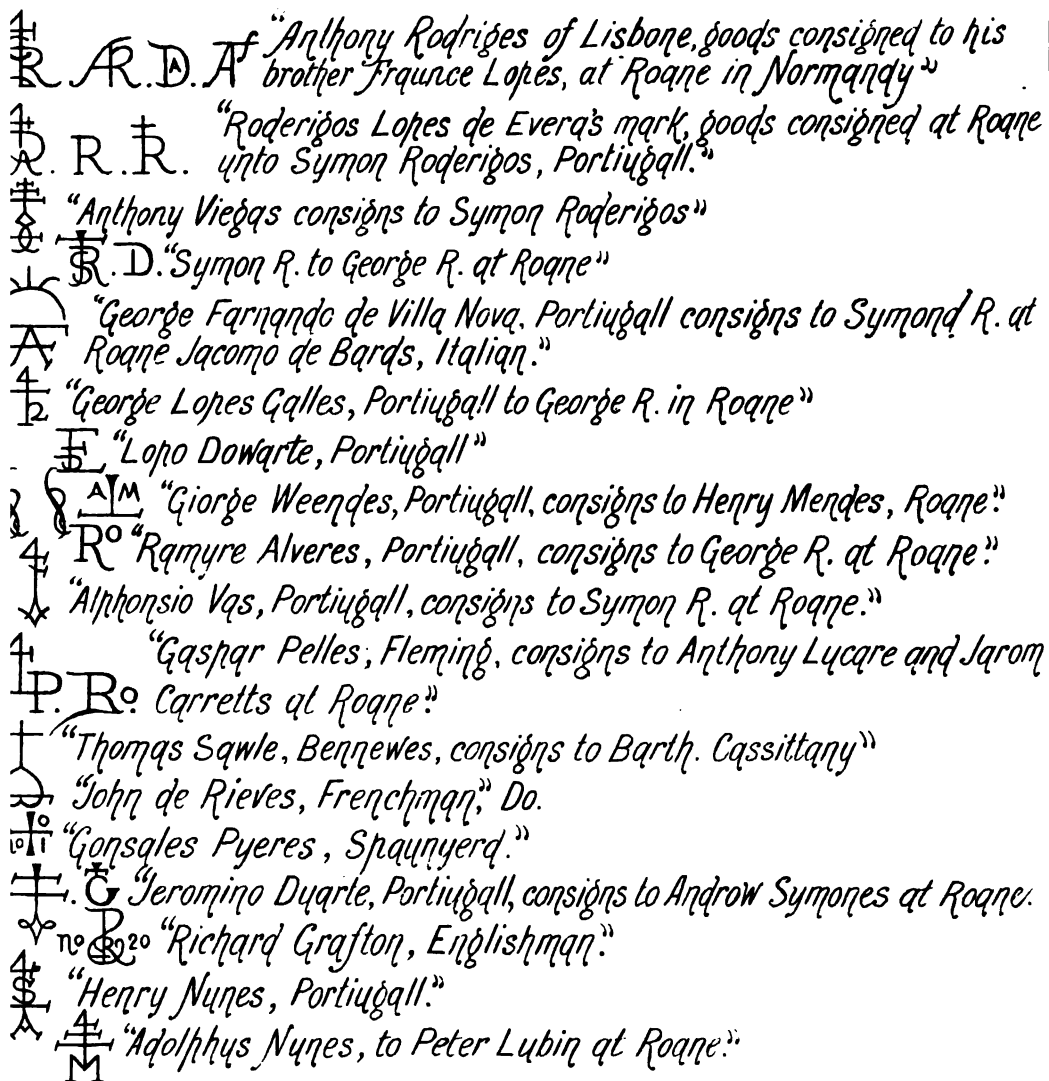 R AR.D.A Af "Anthony Rodriges of Lisbone, goods consigned to his
brother Fraunce Lopes, at Roane in Normandy"
R. R. R. "Roderigos Lopes de Evera's mark, goods consigned at Roane
unto Symon Roderigos, Portiugall."
"Anthony Viegas consigns to Symon Roderigos"
R.D. "Symon R. to George R. at Roane"
"George Farnando de Villa Nova, Portiugall consigns to Symond R. at
A Roane Jacomo de Bards, Italian."
"George Lopes Galles, Portiugall to George R. in Roane"
"Lopo Dowarte, Portiugall"
A M "Giorge Weendes, Portiugall, consigns to Henry Mendes, Roane."
Ro "Ramyre Alveres, Portiugall, consigns to George R. at Roane."
"Alphonsio Vas, Portiugall, consigns to Symon R. at Roane."
"Gaspar Pelles, Fleming, consigns to Anthony Lycare and Jarom
P. Ro. Carretts at Roane."
"Thomas Sawle, Bennewes, consigns to Barth. Cassittany"
"John de Rieves, Frenchman," Do.
"Gonsales Pyeres, Spaunyerd."
G "Jeromino Duarte, Portiugall, consigns to Androw Symones at Roane.
no 20 "Richard Grafton, Englishman."
"Henry Nunes, Portiugall."
M "Adolphus Nunes, to Peter Lubin at Roane."